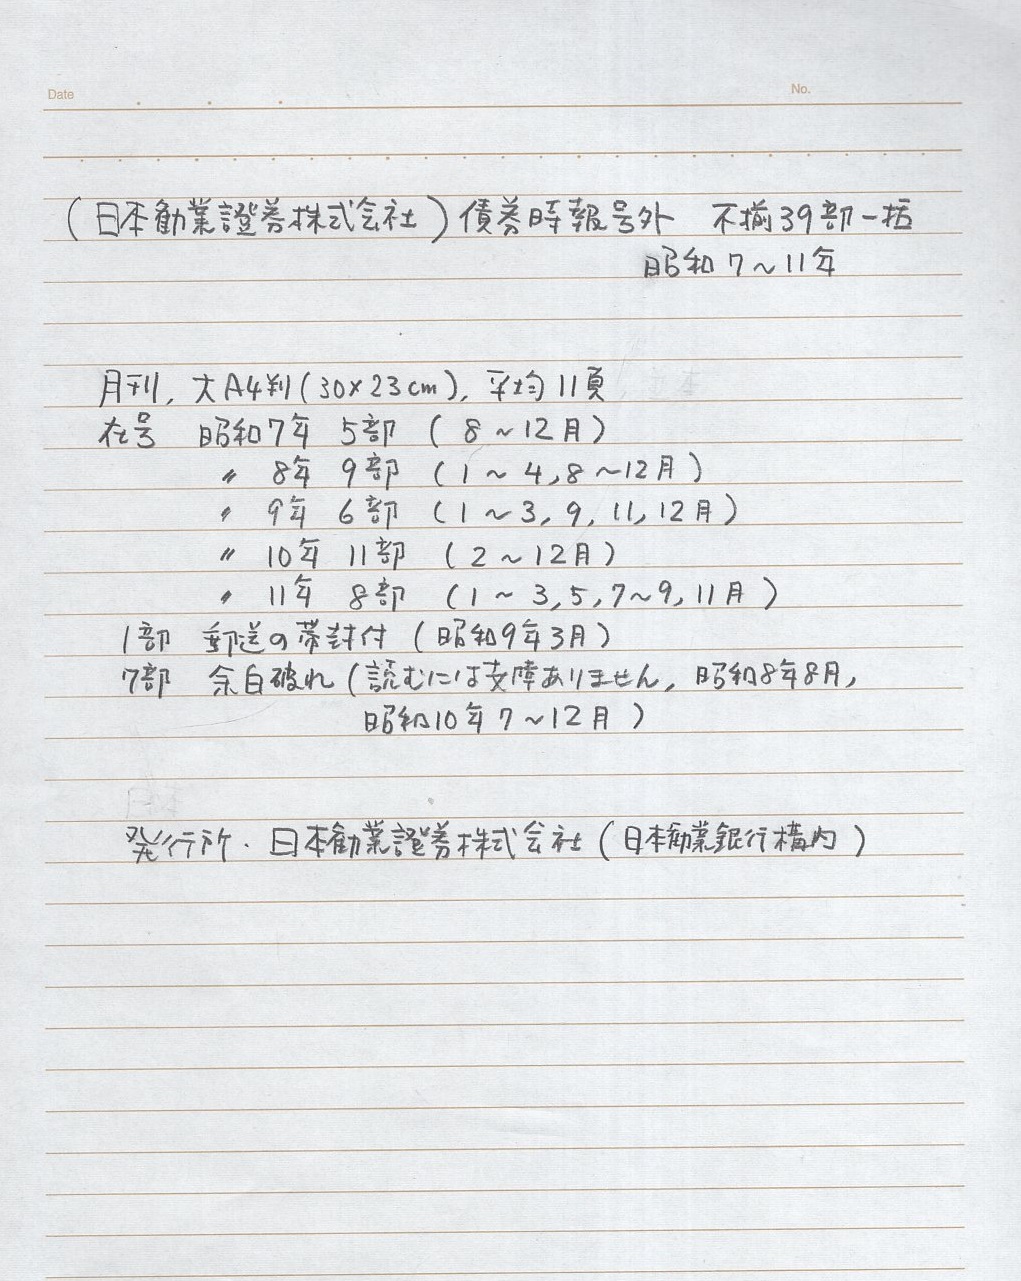 Date
No.
(日本勧業證券株式会社)債券時報号外 不揃39部一括
昭和7~11年
月刊, 大A4判(30×23cm), 平均11頁
在号 昭和7年 5部 (8~12月)
〃 8年 9部 (1~4,8~12月)
〃 9年 6部 (1~3,9,11,12月)
〃 10年 11部 (2~12月)
〃 11年 8部 (1~3,5,7~9,11月)
1部 郵送の帯封付(昭和9年3月)
7部 余白破れ(読むには支障ありません, 昭和8年8月,
昭和10年7~12月)
発行所・日本勧業證券株式会社(日本勧業銀行構内)